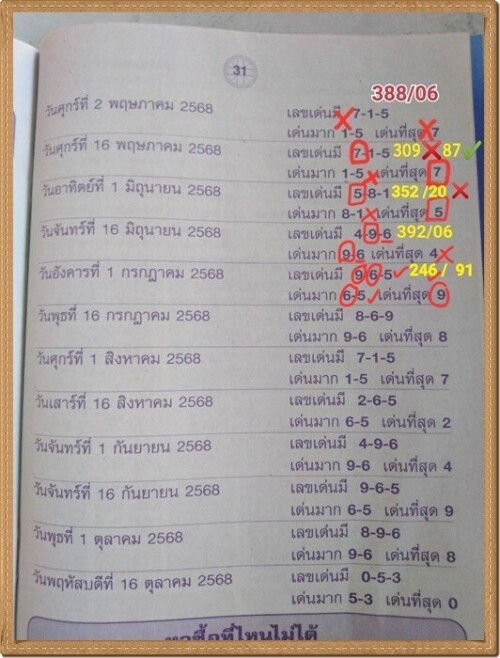 31
388/06
วันศุกร์ที่ 2 พฤษภาคม 2568 เลขเด่นมี 7-1-5
เด่นมาก 1-5 เด่นที่สุด 7
วันศุกร์ที่ 16 พฤษภาคม 2568 เลขเด่นมี 7-1-5 309 ❌ 87 ✓
เด่นมาก 1-5 เด่นที่สุด 7
วันอาทิตย์ที่ 1 มิถุนายน 2568 เลขเด่นมี 5-8-1 352/20 ❌
เด่นมาก 8-1 เด่นที่สุด 5
วันจันทร์ที่ 16 มิถุนายน 2568 เลขเด่นมี 4-9-6 392/06
เด่นมาก 9-6 เด่นที่สุด 4
วันอังคารที่ 1 กรกฎาคม 2568 เลขเด่นมี 9-6-5 246/ 91
เด่นมาก 6-5 เด่นที่สุด 9
วันพุธที่ 16 กรกฎาคม 2568 เลขเด่นมี 8-6-9
เด่นมาก 9-6 เด่นที่สุด 8
วันศุกร์ที่ 1 สิงหาคม 2568 เลขเด่นมี 7-1-5
เด่นมาก 1-5 เด่นที่สุด 7
วันเสาร์ที่ 16 สิงหาคม 2568 เลขเด่นมี 2-6-5
เด่นมาก 6-5 เด่นที่สุด 2
วันจันทร์ที่ 1 กันยายน 2568 เลขเด่นมี 4-9-6
เด่นมาก 9-6 เด่นที่สุด 4
วันจันทร์ที่ 16 กันยายน 2568 เลขเด่นมี 9-6-5
เด่นมาก 6-5 เด่นที่สุด 9
วันพุธที่ 1 ตุลาคม 2568 เลขเด่นมี 8-9-6
เด่นมาก 9-6 เด่นที่สุด 8
วันพฤหัสบดีที่ 16 ตุลาคม 2568 เลขเด่นมี 0-5-3
เด่นมาก 5-3 เด่นที่สุด 0
หาซื้อที่ไหนไม่ได้